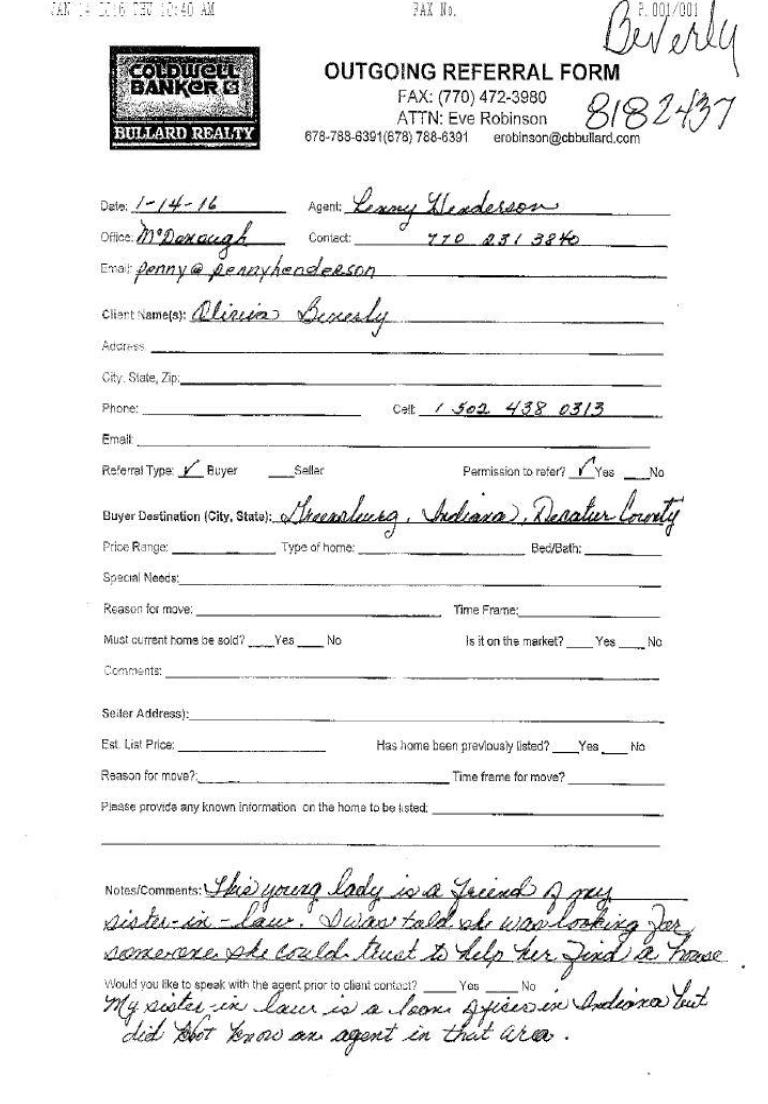 JAN 14 2016 THU 10:40 AM FAX No. P. 001/001
Beverly
COLDWELL BANKER
BULLARD REALTY
OUTGOING REFERRAL FORM
FAX: (770) 472-3980
ATTN: Eve Robinson
8182437
678-788-6391(678) 788-6391 erobinson@cbbullard.com
Date: 1-14-16 Agent: Penny Henderson
Office: McDonough Contact: 770 231 3840
Email: penny@pennyhenderson
Client Name(s): Olivia Beverly
Address:
City, State, Zip:
Phone: Cell: 1 502 438 0313
Email:
Referral Type: ✓ Buyer ___Seller Permission to refer? ✓ Yes ___No
Buyer Destination (City, State): Greensburg, Indiana, Decatur County
Price Range: Type of home: Bed/Bath:
Special Needs:
Reason for move: Time Frame:
Must current home be sold? ___Yes ___ No Is it on the market? ___ Yes ___ No
Comments:
Seller Address):
Est. List Price: Has home been previously listed? ___Yes ___ No
Reason for move?: Time frame for move?
Please provide any known information on the home to be listed:
Notes/Comments: This young lady is a friend of my
sister-in-law. I was told she was looking for
someone she could trust to help her find a house.
Would you like to speak with the agent prior to client contact? ___ Yes ___ No
My sister-in law is a loan officer in Indiana but
did not know an agent in that area.